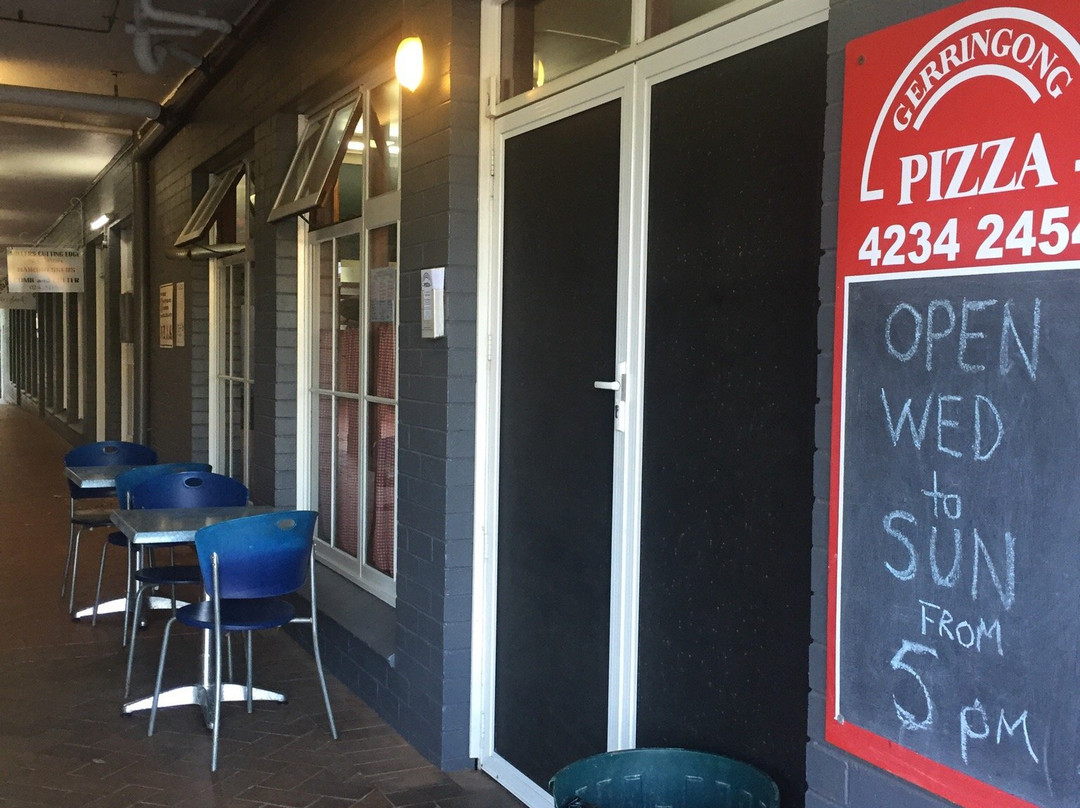 GERRINGONG
PIZZA
4234 2454
OPEN
WED
to
SUN
FROM
5 pm